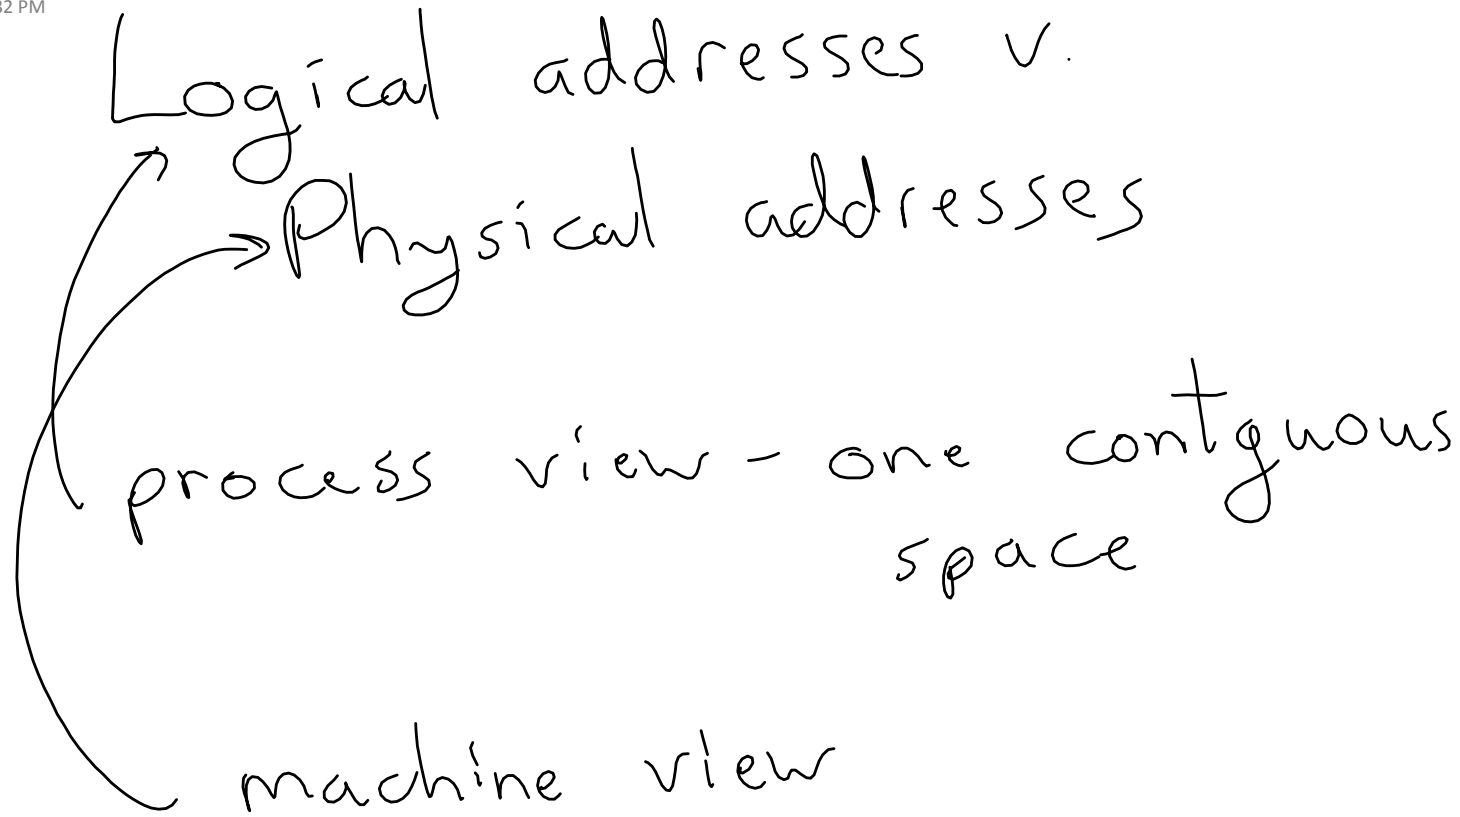 32 PM
Logical addresses v.
Physical addresses
process view - one contguous
space
machine view